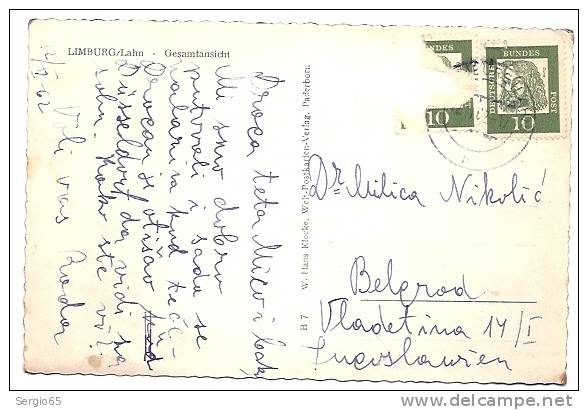 LIMBURG/Lahn - Gesamtansicht
12/2 62
Draga teta Mico i
Mi smo dobro
putovali i sada se
nalazimo kod
Dragan je otišao
Düsseldorf da vidi
Kako ste vi?
Voli vas
B 7 W. Hans Klocke, Welt-Postkarten-Verlag, Paderborn
BUNDES
10
DEUTSCHE
BUNDES
POST
10
Dr Milica Nikolić
Belgrad
Vladetina 14/I
Jugoslawien
Sergio65
delcampe.net